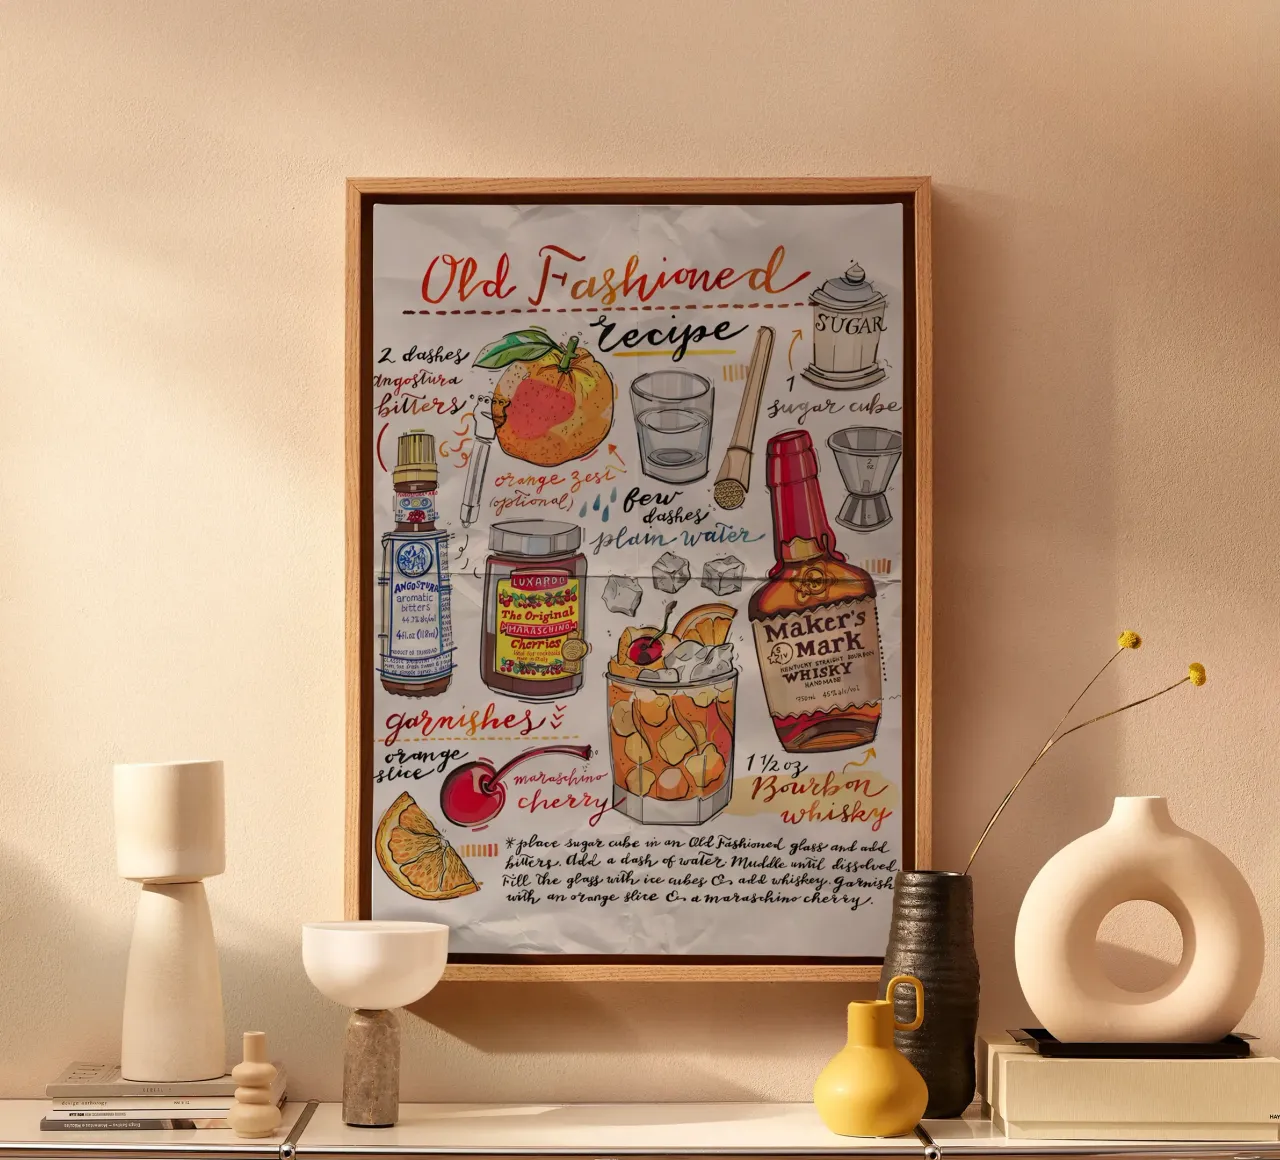 Old Fashioned
recipe
SUGAR
1
sugar cube
2 dashes
angostura
bitters
orange zest
(optional)
few
dashes
plain water
2
oz
ANGOSTURA
aromatic
bitters
44.7% alc/vol
4 fl.oz (118ml)
PRODUCT OF TRINIDAD
LUXARDO
The Original
MARASCHINO
Cherries
Maker's
Mark
KENTUCKY STRAIGHT BOURBON
WHISKY
HANDMADE
750ml 45% alc/vol
garnishes
orange
slice
maraschino
cherry
1 1/2 oz
Bourbon
whisky
*place sugar cube in an Old Fashioned glass and add
bitters. Add a dash of water Muddle until dissolved
Fill the glass with ice cubes & add whiskey. Garnish
with an orange slice & a maraschino cherry.
design anthology
HAY